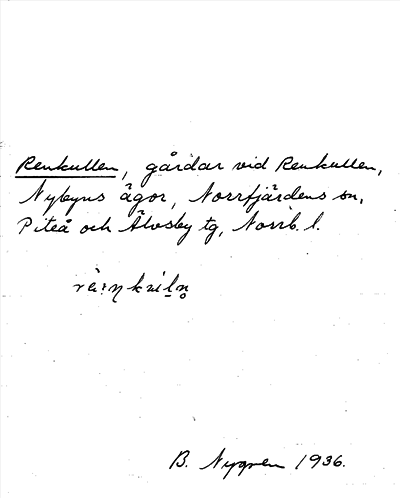 Renkullen, gårdar vid Renkullen,
Nybyns ägor, Norrfjärdens sn,
Piteå och Älvsby tg, Norrb. l.
B. Nygren 1936.